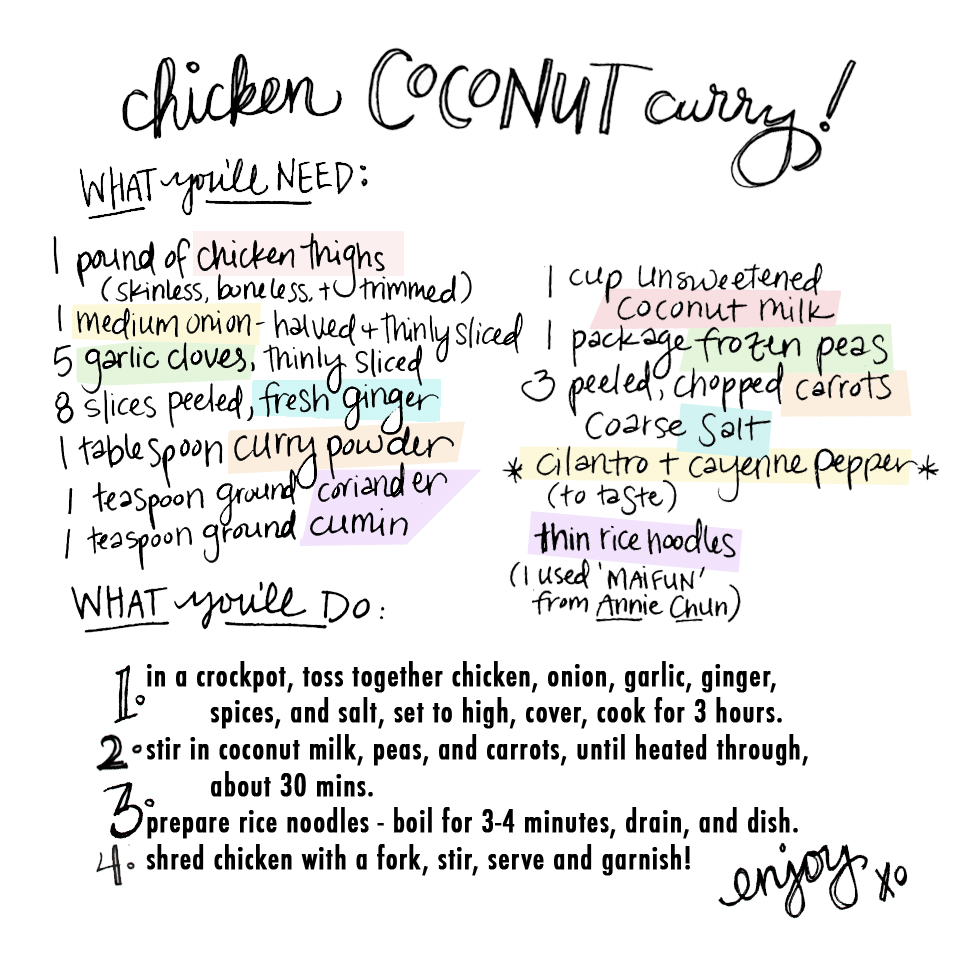 chicken COCONUT curry!
WHAT you'll NEED:
1 pound of chicken thighs
(skinless, boneless, + trimmed)
1 medium onion - halved + thinly sliced
5 garlic cloves, thinly sliced
8 slices peeled, fresh ginger
1 tablespoon curry powder
1 teaspoon ground coriander
1 teaspoon ground cumin
1 cup unsweetened
coconut milk
1 package frozen peas
3 peeled, chopped carrots
coarse salt
* cilantro + cayenne pepper *
(to taste)
thin rice noodles
(I used 'MAIFUN'
from Annie Chun)
WHAT you'll DO:
1. in a crockpot, toss together chicken, onion, garlic, ginger,
spices, and salt, set to high, cover, cook for 3 hours.
2. stir in coconut milk, peas, and carrots, until heated through,
about 30 mins.
3. prepare rice noodles - boil for 3-4 minutes, drain, and dish.
4. shred chicken with a fork, stir, serve and garnish!
enjoy xo